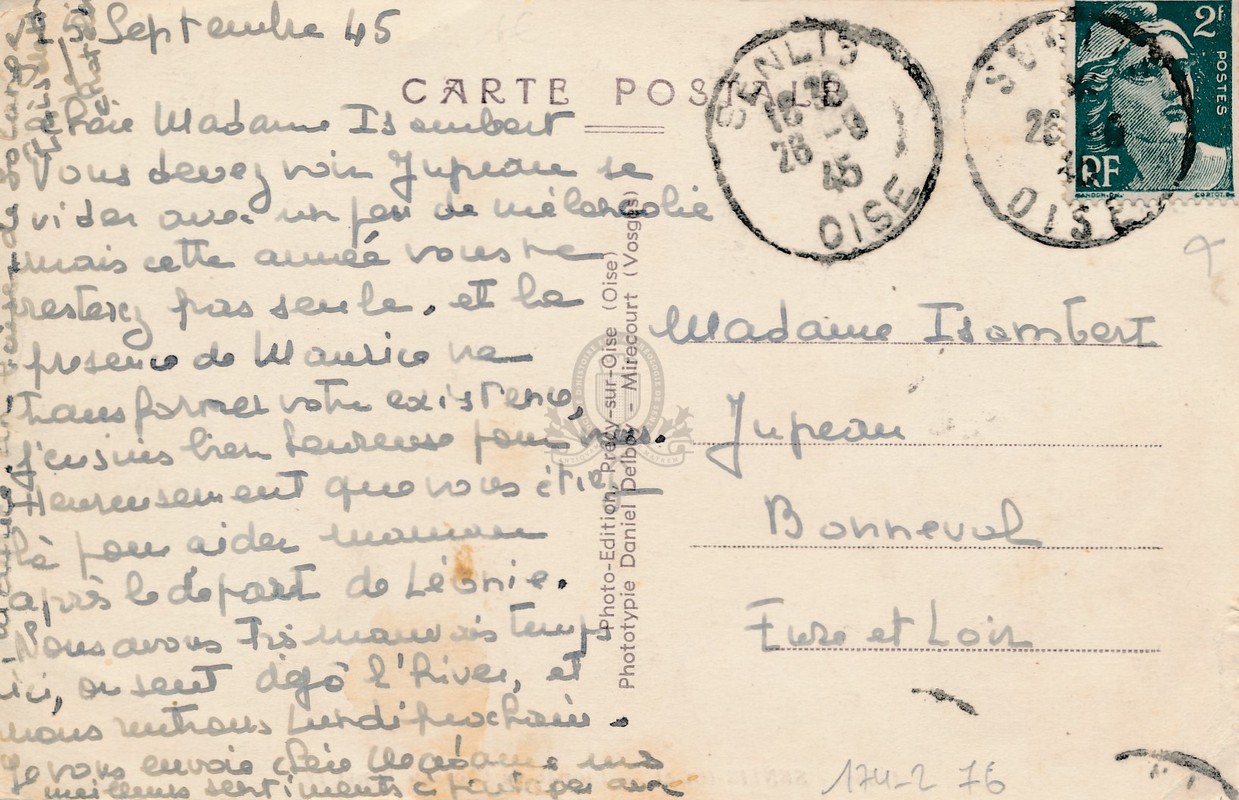 25 Septembre 45
CARTE POSTALE
Chère Madame Isambert
Vous devez voir Jupeau se
vider avec un peu de mélancolie
mais cette année vous ne
resterez pas seule, et la
présence de Maurice va
transformer votre existence,
j'en suis bien heureuse pour vous.
Heureusement que vous étiez
là pour aider maman
après le départ de Léonie.
Nous avons très mauvais temps
ici, on sent déjà l'hiver, et
nous rentrons Lundi prochain.
Je vous envoie chère Madame mes
meilleurs sentiments à partager avec
Photo-Edition, Précy-sur-Oise (Oise)
Phototypie Daniel Delboy - Mirecourt (Vosges)
SENLIS
18
26 -9
45
OISE
26
OISE
2f
POSTES
RF
Madame Isambert
Jupeau
Bonneval
Eure et Loir
174-2 76